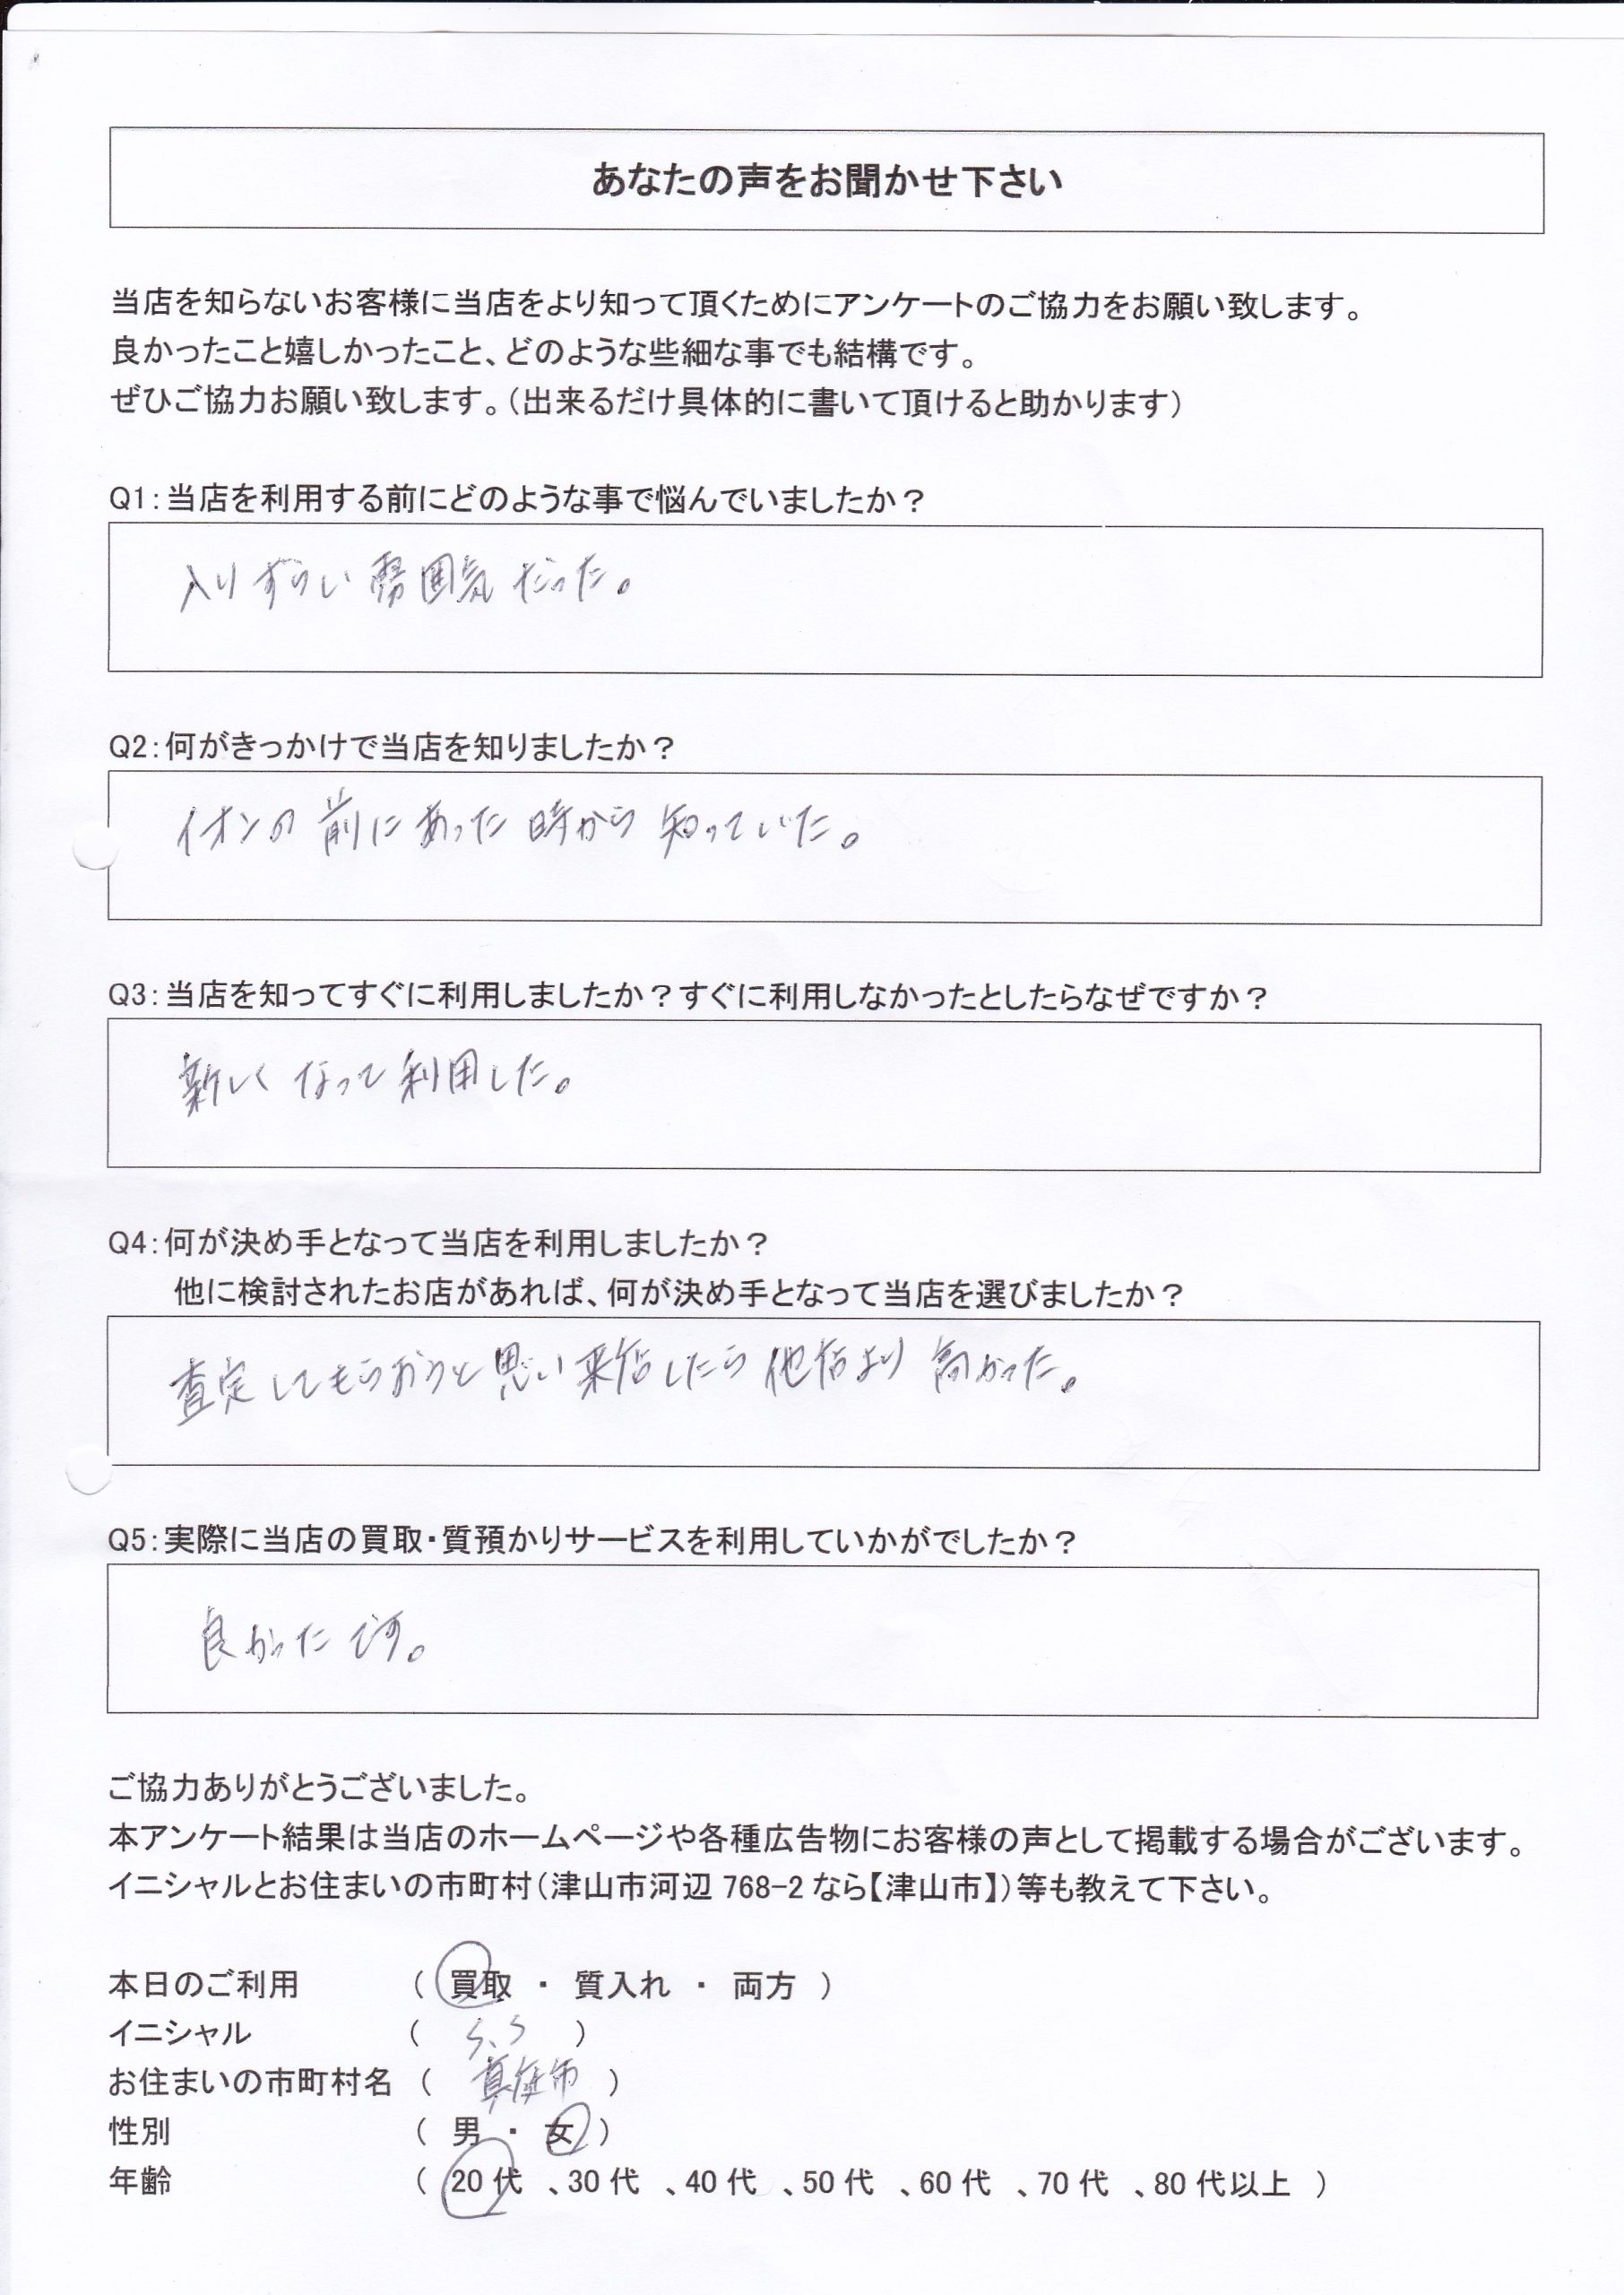 あなたの声をお聞かせ下さい
当店を知らないお客様に当店をより知って頂くためにアンケートのご協力をお願い致します。
良かったこと嬉しかったこと、どのような些細な事でも結構です。
ぜひご協力お願い致します。（出来るだけ具体的に書いて頂けると助かります）
Q1：当店を利用する前にどのような事で悩んでいましたか？
入りずらい雰囲気だった。
Q2：何がきっかけで当店を知りましたか？
イオンの前にあった時から知っていた。
Q3：当店を知ってすぐに利用しましたか？すぐに利用しなかったとしたらなぜですか？
新しくなって利用した。
Q4：何が決め手となって当店を利用しましたか？
他に検討されたお店があれば、何が決め手となって当店を選びましたか？
査定してもらおうと思い来店したら他店より高かった。
Q5：実際に当店の買取・質預かりサービスを利用していかがでしたか？
良かったです。
ご協力ありがとうございました。
本アンケート結果は当店のホームページや各種広告物にお客様の声として掲載する場合がございます。
イニシャルとお住まいの市町村（津山市河辺 768-2 なら【津山市】）等も教えて下さい。
本日のご利用 （ 買取 ・ 質入れ ・ 両方 ）
イニシャル （ S.S ）
お住まいの市町村名 （ 真庭市 ）
性別 （ 男 ・ 女 ）
年齢 （ 20 代 、30 代 、40 代 、50 代 、60 代 、70 代 、80 代以上 ）